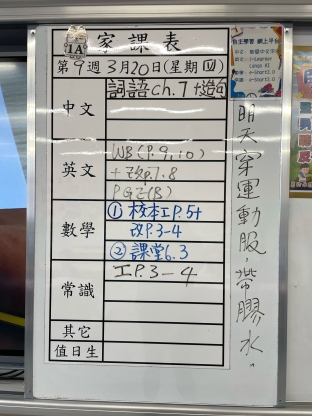 1A 家課表
第9週3月20日(星期四)
中文
詞語ch.7+造句
英文
WB(P.9,10)
+改p.7,8
數學
① 校本工P.5+
改P.3-4
② 課堂6.3
常識
工P.3-4
其它
值日生
明天穿運動服，帶膠水。
自主學習 網上平台